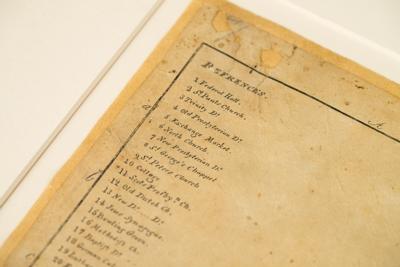 REFRENCES.
1 Federal Hall.
2 St. Pauls Church.
3 Trinity Do.
4 Old Presbyterian Do.
5 Exchange Market.
6 North Church.
7 New Presbyterian Do.
8 St. George's Chappel
9 St. Peters Church
10 College
11 Scots Presbyn. Ch.
12 Old Dutch Ch.
13 New Do. Do.
14 Jews Synagogue.
15 Bowling Green.
16 Methodist Ch.
17 Baptist Do.
18 German
19
20
A
a
b